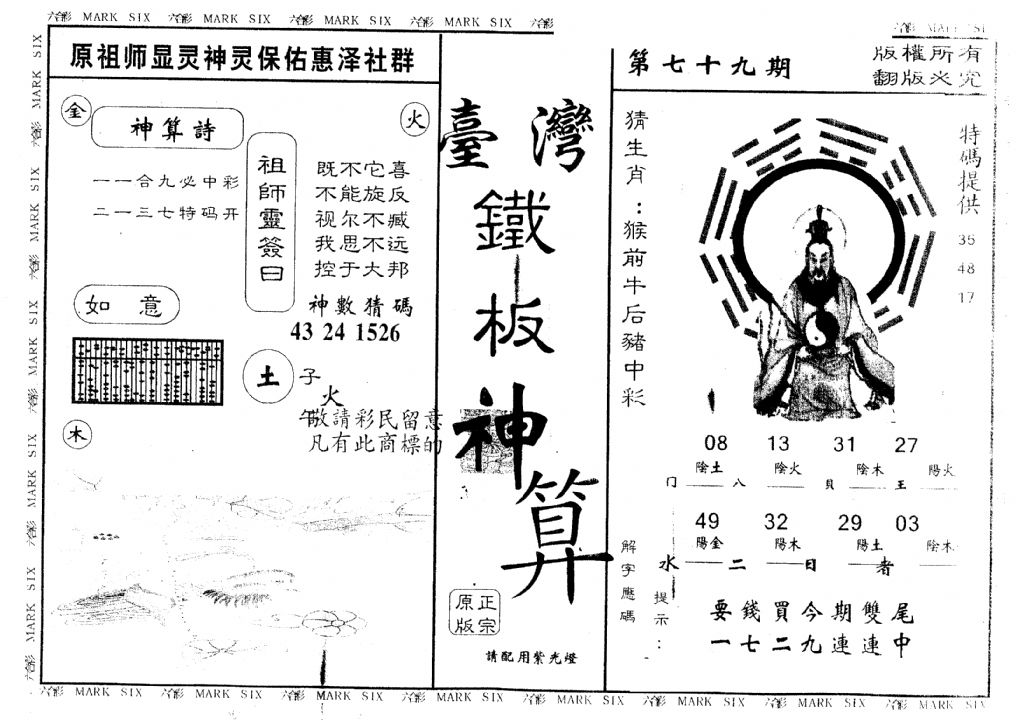 六合彩 MARK SIX 六合彩 MARK SIX 六合彩 MARK SIX 六合彩 MARK SIX 六合彩
原祖师显灵神灵保佑惠泽社群
金
神算詩
火
一一合九必中彩
二一三七特码开
祖師靈簽曰
既不它喜
不能旋反
视尔不臧
我思不远
控于大邦
神數猜碼
43 24 1526
如意
土
子
火
午
敬請彩民留意
凡有此商標的
木
臺灣
鐵板神算
正宗
原版
請配用紫光燈
第七十九期
版權所有
翻版必究
猜生肖：猴前牛后豬中彩
特碼提供
35
48
17
08 13 31 27
陰土 陰火 陰木 陽火
门 八 貝 王
49 32 29 03
陽金 陽木 陽土 陰木
水 二 日 者
解字應碼
提示：
要錢買今期雙尾
一七二九連連中
六合彩 MARK SIX 六合彩 MARK SIX 六合彩 MARK SIX 六合彩 MARK SIX 六合彩 MARK SIX 六合彩 MARK SIX 六合彩 MARK SIX 六合彩 MARK SIX